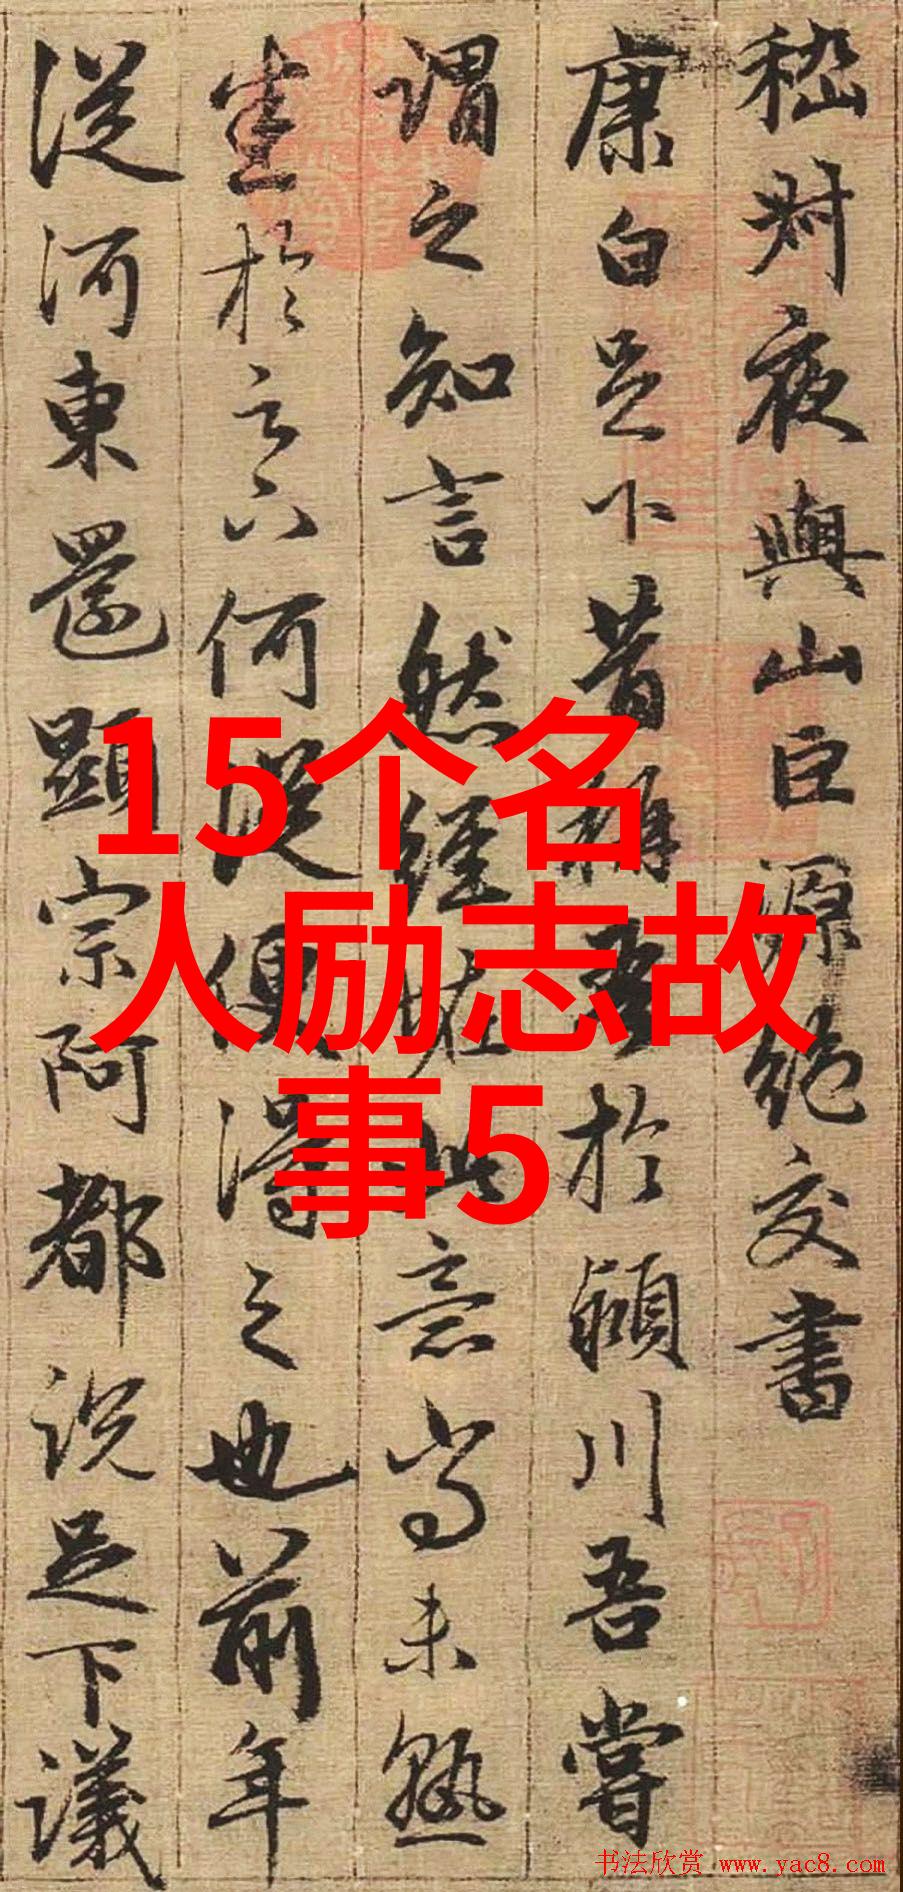 嵇叔夜與山巨源絕交書
康白足下昔稱吾於潁川吾嘗
謂之知言然經恠此意尚未熟
悉於足下何從便得之也前年
從河東還顯宗阿都說足下議
15个名
人励志故
事5
书法欣赏 www.yac8.com